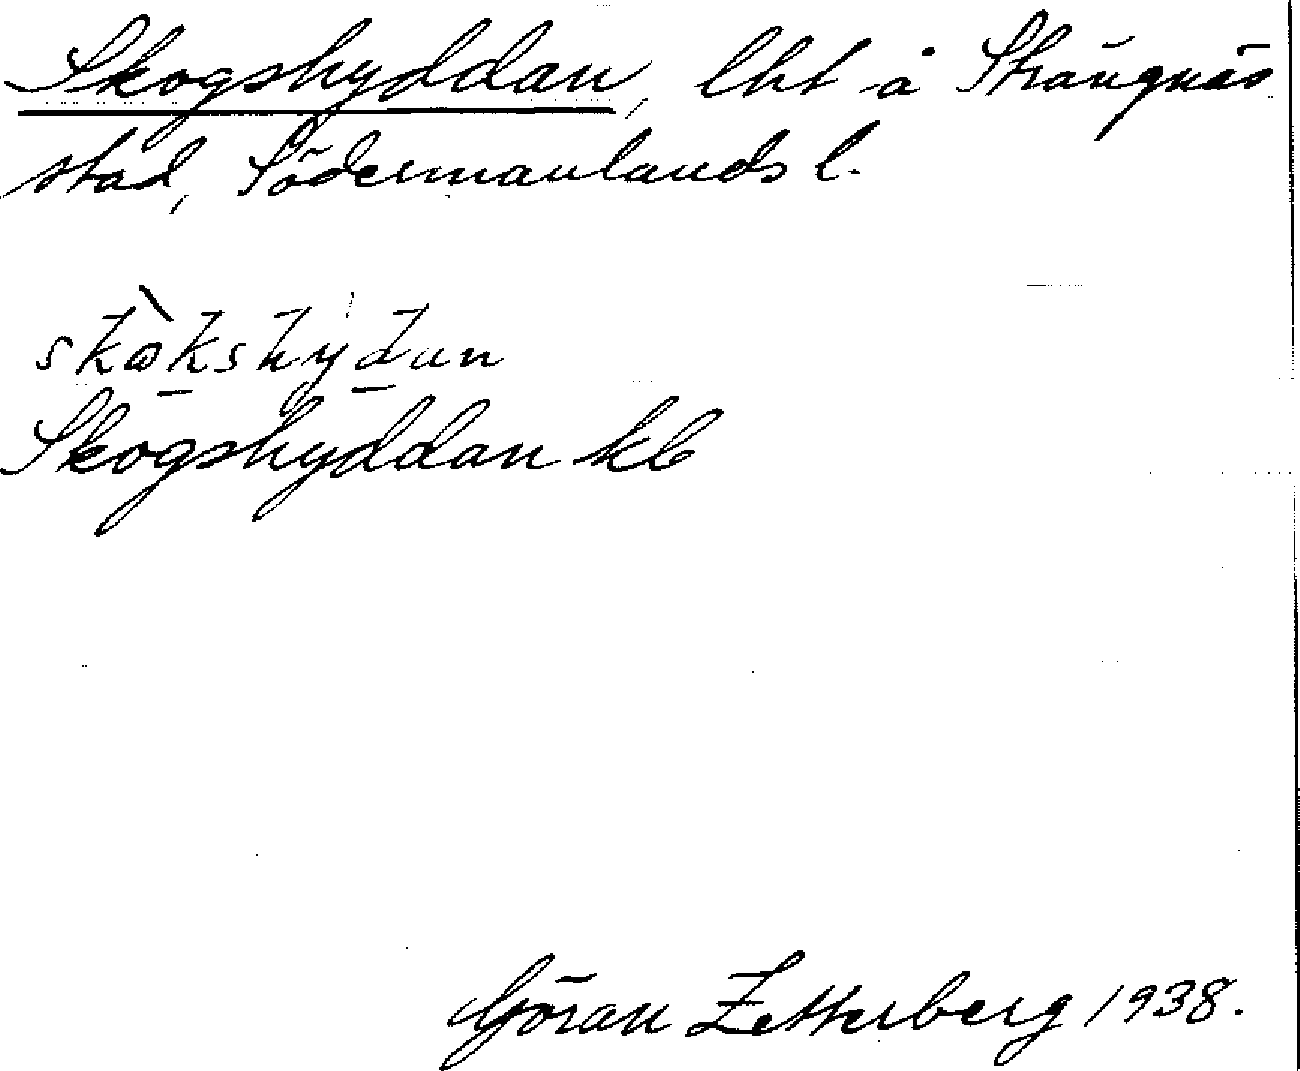 Skogshyddan, lht å Strängnäs
stad, Södermanlands l.
skògkshydan
Skogshyddan kb
Göran Zetterberg 1938.